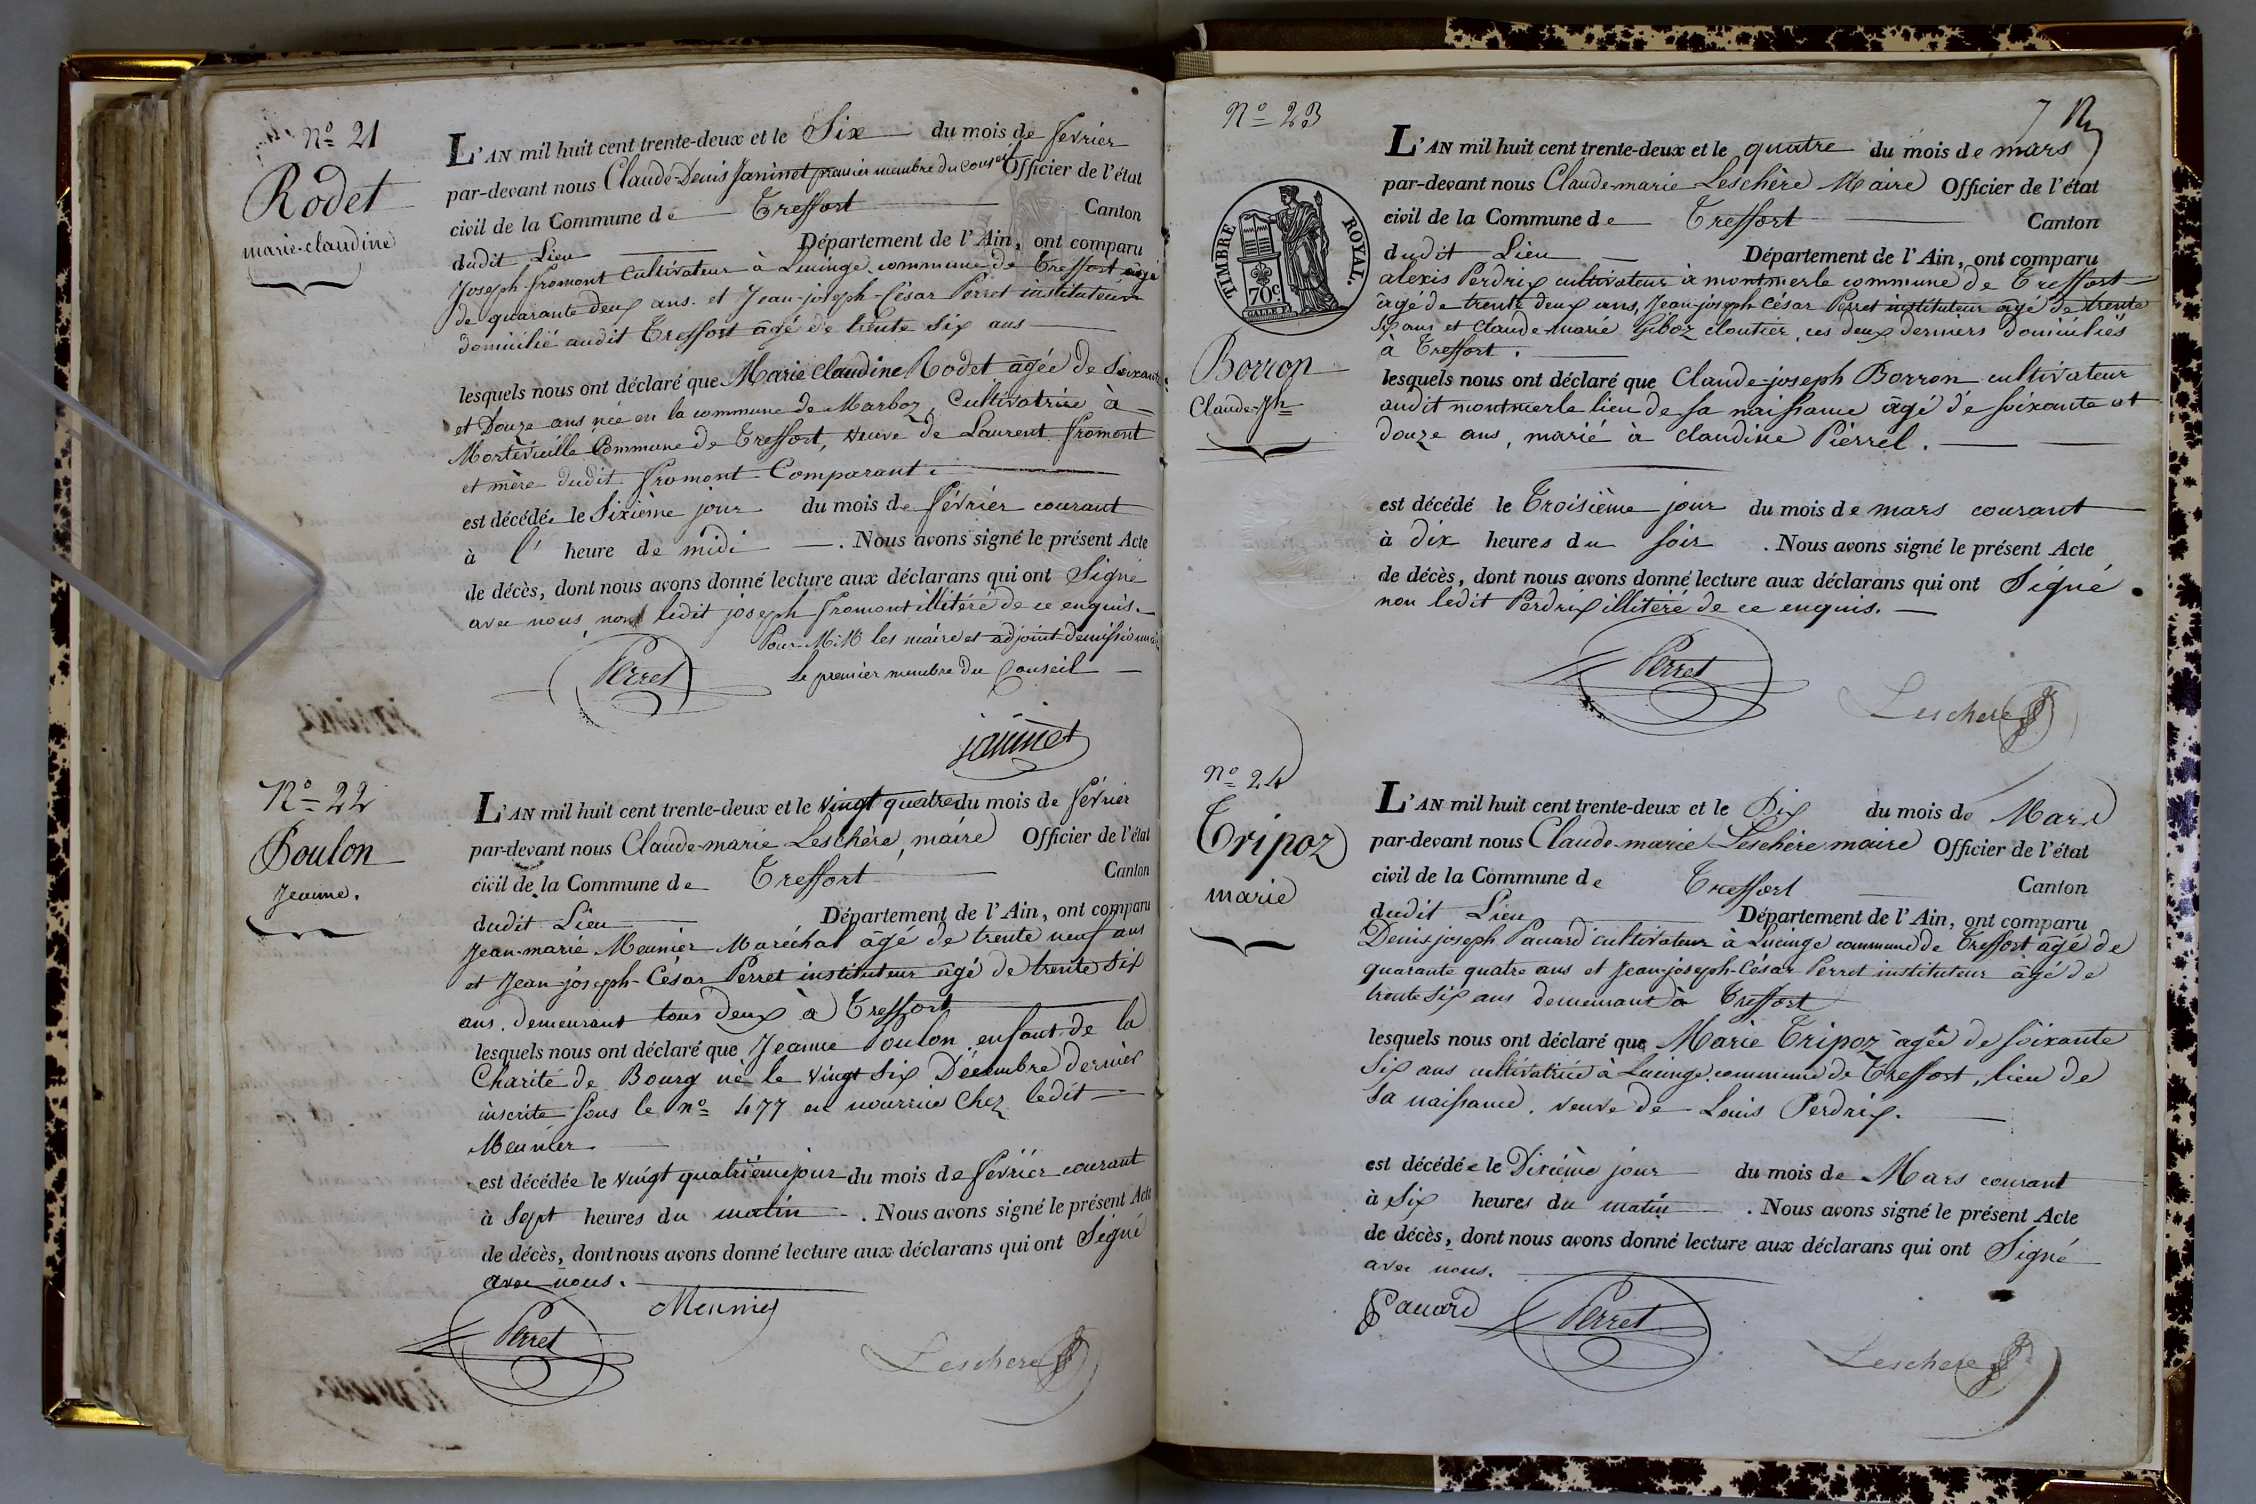 Nº 21
Rodet
marie-claudine
L'AN mil huit cent trente-deux et le Six du mois de fevrier
par-devant nous Claude-Denis Janinet premier membre du Conseil Officier de l'état
civil de la Commune de Treffort Canton
dudit Lieu Département de l'Ain, ont comparu
Joseph fromont Cultivateur à Lucinge commune de Treffort âgé
de quarante deux ans. et Jean-joseph-César Perret instituteur
domicilié audit Treffort âgé de trente six ans
lesquels nous ont déclaré que Marie Claudine Rodet âgée de Soixante
et Douze ans née en la commune de Marboz, Cultivatrice à
Mortevieille Commune de Treffort, veuve de Laurent fromont
et mère dudit fromont Comparant.
est décédée le Sixième jour du mois de février courant
à l' heure de midi. Nous avons signé le présent Acte
de décès, dont nous avons donné lecture aux déclarans qui ont Signé
avec nous non ledit joseph fromont illitéré de ce enquis.
Pour MM les maire et adjoint démissionnaires
Le premier membre du Conseil
Perret
janinet
Nº 22
Poulon
Jeanne.
L'AN mil huit cent trente-deux et le vingt quatre du mois de février
par-devant nous Claude-marie Leschère, maire Officier de l'état
civil de la Commune de Treffort Canton
dudit Lieu Département de l'Ain, ont comparu
Jean-marie Meunier Maréchal âgé de trente neuf ans
et Jean-joseph-César Perret instituteur âgé de trente six
ans. demeurant tous deux à Treffort
lesquels nous ont déclaré que Jeanne Poulon enfant de la
Charité de Bourg né le vingt six Décembre dernier
inscrite sous le nº 477 en nourrice chez ledit
Meunier
est décédée le vingt quatrième jour du mois de février courant
à Sept heures du matin. Nous avons signé le présent Acte
de décès, dont nous avons donné lecture aux déclarans qui ont Signé
avec nous.
Perret
Meunier
Leschere
Nº 23
TIMBRE ROYAL.
70c.
Borron
Claude-Jh
L'AN mil huit cent trente-deux et le quatre du mois de mars
par-devant nous Claude-marie Leschère Maire Officier de l'état
civil de la Commune de Treffort Canton
dudit Lieu Département de l'Ain, ont comparu
alexis Perdrix cultivateur à montmerle commune de Treffort
âgé de trente deux ans, Jean-joseph César Perret instituteur âgé de trente
six ans et Claude-marie Giboz cloutier, ces deux derniers domiciliés
à Treffort.
lesquels nous ont déclaré que Claude-joseph Borron cultivateur
audit montmerle lieu de sa naissance âgé de soixante et
douze ans, marié à claudine Pierrel.
est décédé le Troisième jour du mois de mars courant
à dix heures du soir. Nous avons signé le présent Acte
de décès, dont nous avons donné lecture aux déclarans qui ont Signé
non ledit Perdrix illitéré de ce enquis.
Perret
Leschere
Nº 24
Tripoz
marie
L'AN mil huit cent trente-deux et le Dix du mois de Mars
par-devant nous Claude-marie Leschère maire Officier de l'état
civil de la Commune de Treffort Canton
dudit Lieu Département de l'Ain, ont comparu
Denis joseph Pauard cultivateur à Lucinge commune de Treffort âgé de
quarante quatre ans et Jean-joseph-César Perret instituteur âgé de
trente six ans demeurant à Treffort
lesquels nous ont déclaré que Marie Tripoz âgée de soixante
Six ans cultivatrice à Lucinge commune de Treffort, lieu de
Sa naissance. veuve de Louis Perdrix.
est décédée le Dixième jour du mois de Mars courant
à Six heures du matin. Nous avons signé le présent Acte
de décès, dont nous avons donné lecture aux déclarans qui ont Signé
avec nous.
Pauard
Perret
Leschere